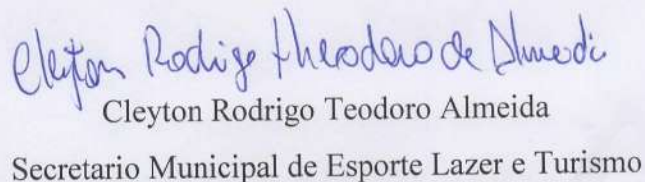 Cleyton Rodrigo theodoro de Almeida
Cleyton Rodrigo Teodoro Almeida
Secretario Municipal de Esporte Lazer e Turismo